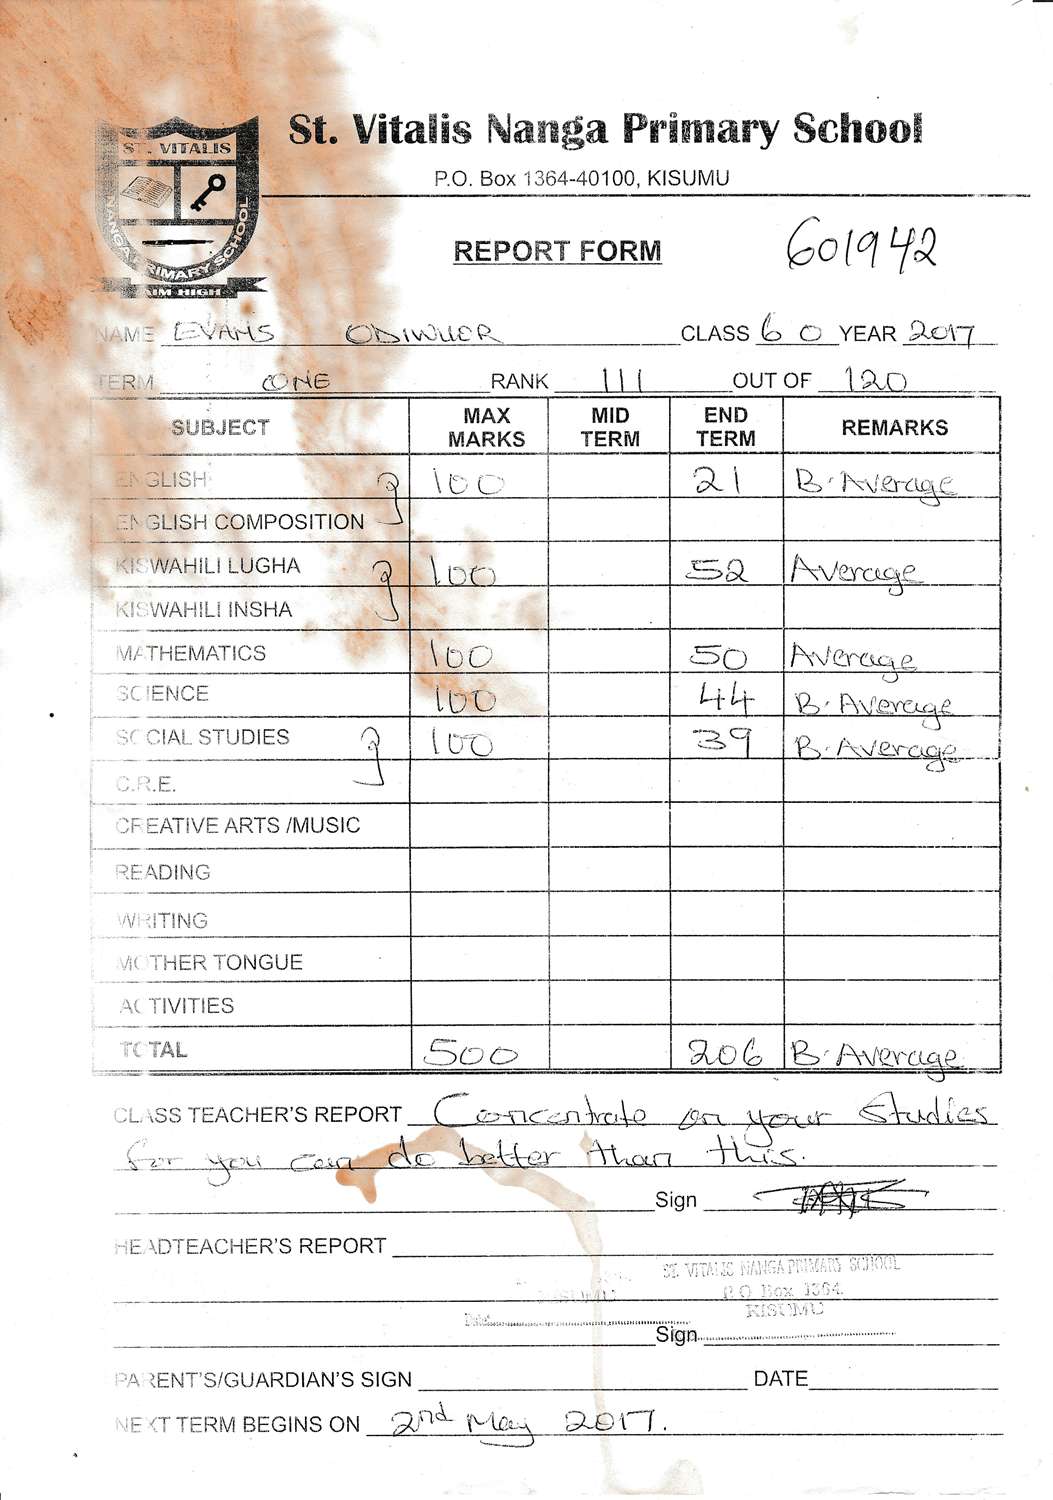 St. Vitalis Nanga Primary School
P.O. Box 1364-40100, KISUMU
ST. VITALIS
NANGA PRIMARY SCHOOL
AIM HIGH
REPORT FORM 601942
NAME EVANS ODIWUOR CLASS 6 O YEAR 2017
TERM ONE RANK 111 OUT OF 120
SUBJECT MAX MARKS MID TERM END TERM REMARKS
ENGLISH 100 21 B. Average
ENGLISH COMPOSITION
KISWAHILI LUGHA 100 52 Average
KISWAHILI INSHA
MATHEMATICS 100 50 Average
SCIENCE 100 44 B. Average
SOCIAL STUDIES 100 39 B. Average
C.R.E.
CREATIVE ARTS /MUSIC
READING
WRITING
MOTHER TONGUE
ACTIVITIES
TOTAL 500 206 B. Average
CLASS TEACHER'S REPORT Concentrate on your Studies
for you can do better than this.
Sign
HEADTEACHER'S REPORT
ST. VITALIS NANGA PRIMARY SCHOOL
P.O Box 1364
KISUMU
Date
Sign
PARENT'S/GUARDIAN'S SIGN DATE
NEXT TERM BEGINS ON 2nd May 2017.